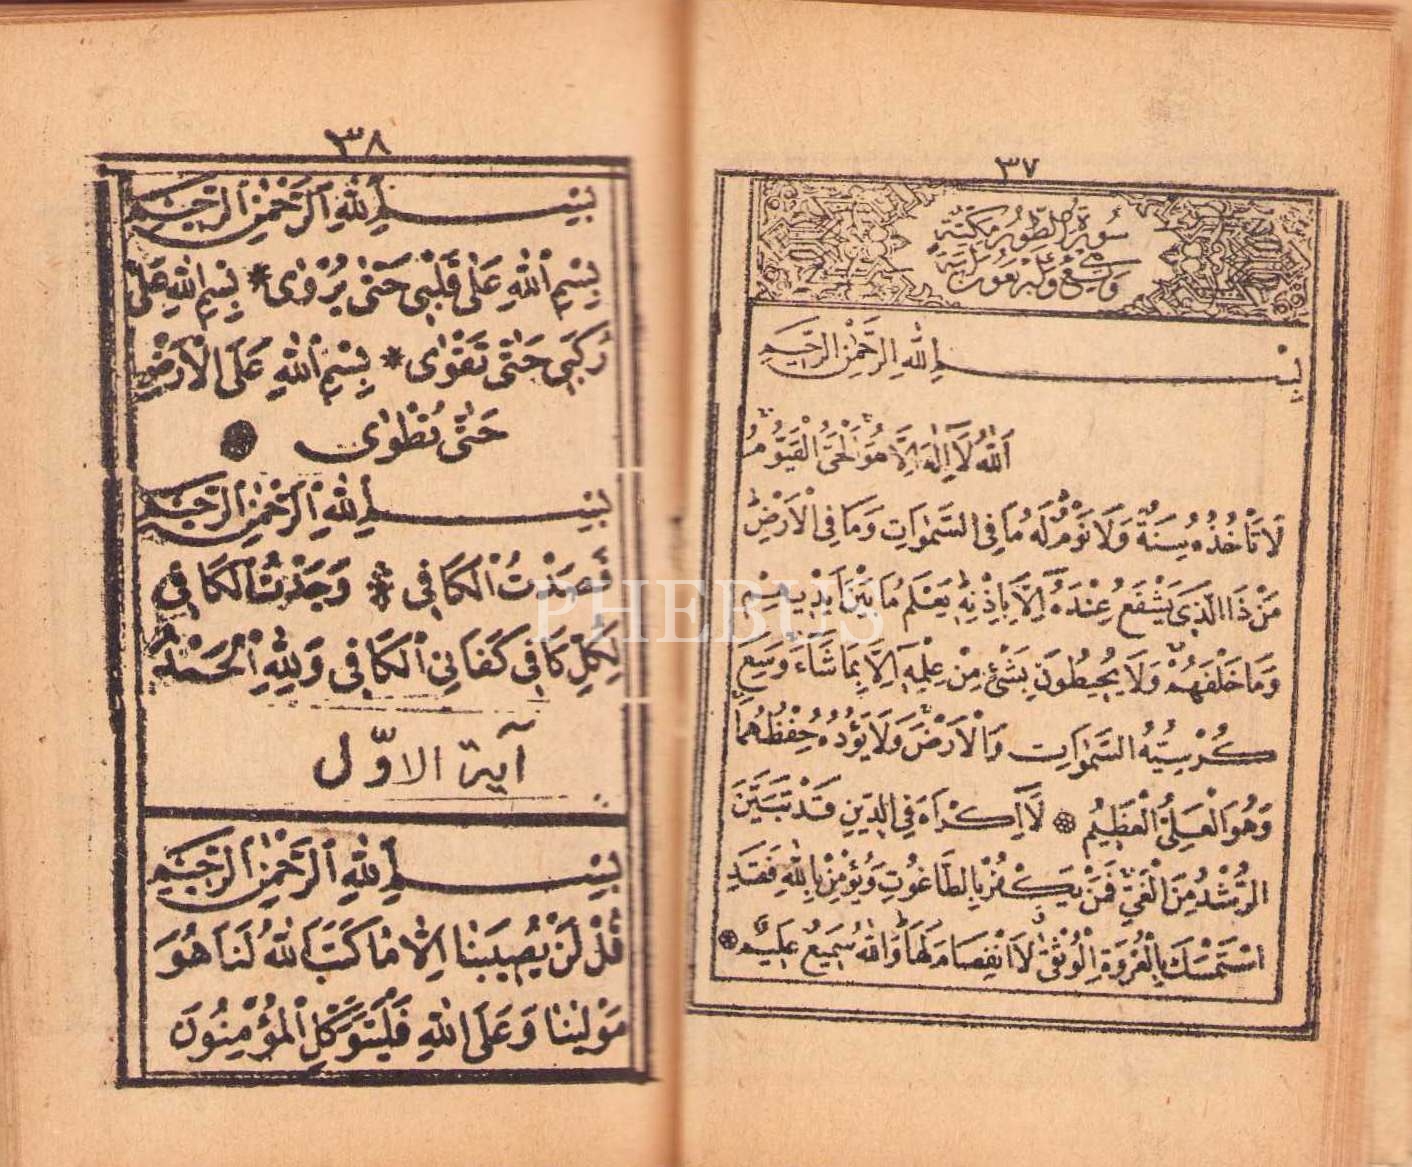 ٣٧
سُورَةُ الطُّورِ مَكِّيَّةٌ
وَهِيَ تِسْعٌ وَأَرْبَعُونَ آيَة
بِسْمِ اللهِ الرَّحْمٰنِ الرَّحِيمِ
اَللهُ لَا اِلٰهَ اِلَّا هُوَ الْحَيُّ الْقَيُّومُ
لَا تَأْخُذُهُ سِنَةٌ وَلَا نَوْمٌ لَهُ مَا فِي السَّمٰوَاتِ وَمَا فِي الْاَرْضِ
مَنْ ذَا الَّذِي يَشْفَعُ عِنْدَهُ اِلَّا بِاِذْنِهِ يَعْلَمُ مَا بَيْنَ اَيْدِيهِمْ
وَمَا خَلْفَهُمْ وَلَا يُحِيطُونَ بِشَىْءٍ مِنْ عِلْمِهِ اِلَّا بِمَا شَاءَ وَسِعَ
كُرْسِيُّهُ السَّمٰوَاتِ وَالْاَرْضَ وَلَا يَؤُدُهُ حِفْظُهُمَا
وَهُوَ الْعَلِىُّ الْعَظِيمُ * لَا اِكْرَاهَ فِي الدِّينِ قَدْ تَبَيَّنَ
الرُّشْدُ مِنَ الْغَيِّ فَمَنْ يَكْفُرْ بِالطَّاغُوتِ وَيُؤْمِنْ بِاللهِ فَقَدِ
اسْتَمْسَكَ بِالْعُرْوَةِ الْوُثْقٰى لَا انْفِصَامَ لَهَا وَاللهُ سَمِيعٌ عَلِيمٌ *
٣٨
بِسْمِ اللهِ الرَّحْمٰنِ الرَّحِيمِ
بِسْمِ اللهِ عَلٰى قَلْبِى حَتّٰى يُرْوٰى * بِسْمِ اللهِ عَلٰى
رُكَبِى حَتّٰى تَقْوٰى * بِسْمِ اللهِ عَلَى الْاَرْضِ
حَتّٰى تُطْوٰى
بِسْمِ اللهِ الرَّحْمٰنِ الرَّحِيمِ
قَصَدْتُ الْكَافِى * وَجَدْتُ الْكَافِى
لِكُلٍّ كَافِى كَفَانِى الْكَافِى وَلِلّٰهِ الْحَمْدُ
آية الاوّل
بِسْمِ اللهِ الرَّحْمٰنِ الرَّحِيمِ
قُلْ لَنْ يُصِيبَنَا اِلَّا مَا كَتَبَ اللهُ لَنَا هُوَ
مَوْلٰينَا وَعَلَى اللهِ فَلْيَتَوَكَّلِ الْمُؤْمِنُونَ
PHEBUS